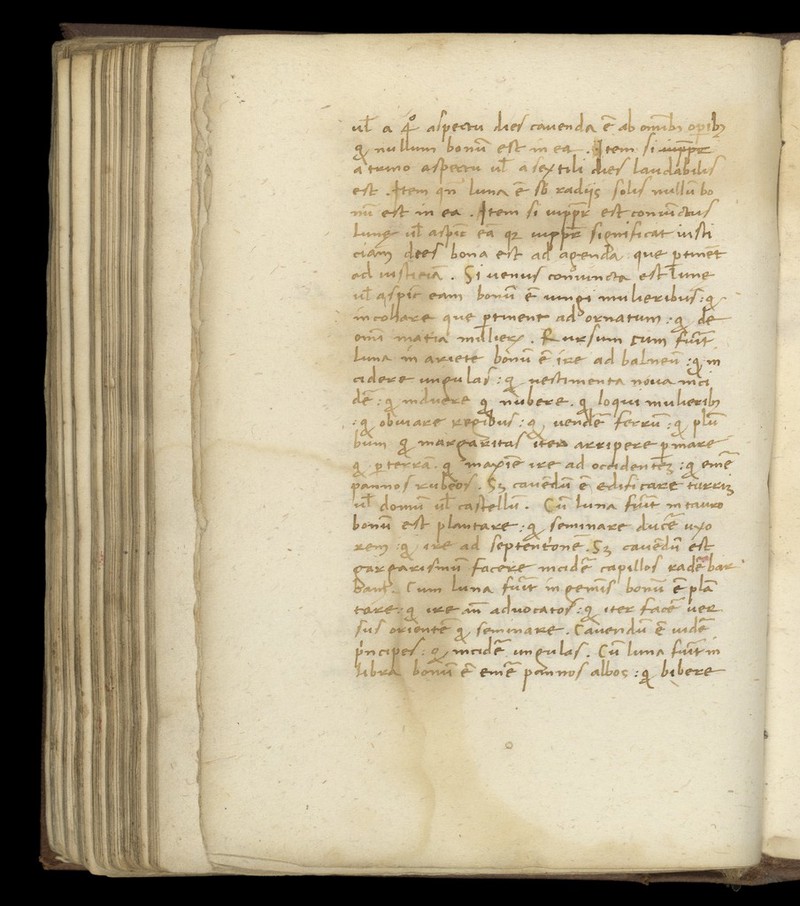 ul̄ a 4º aspectu dies cauenda ē ab omĩbꝫ operibꝫ
ꝙ nullum bonũ est in ea . Item si iuppr̄
a trino aspectu ul̄ a sextili dies laudabilis
est . Item qñ luna ē sb̄ radijs solis nullũ bo
nũ est in ea . Item si iuppr̄ est coniũctus
lune ul̄ aspic̄ eã qꝫ iuppr̄ significat iusti
ciam dees bona est ad agenda que ꝑtinẽt
ad iusticiã . Si uenus coniuncta est lune
ul̄ aspic̄ eam bonũ ē iungi mulieribus : ꝙ
incohare que ꝑtinent ad ornatum : ꝙ de
omi matia mulieꝝ . Rursum cum fũit
luna in ariete bonũ ē ire ad balneũ : ꝙ in
cidere ungulas : ꝙ uestimenta noua inci
dē : ꝙ induere ꝙ nubere . ꝙ loqui mulieribꝫ
: ꝙ obuiare regibus : ꝙ uendē ferrũ : ꝙ plũ
bum ꝙ margaritas iter arripere ꝑ mare
ꝙ ꝑ terrã . ꝙ maxiē ire ad occidentẽ : ꝙ emē
pannos rubeos . Sꝫ cauẽdũ ē edificare turrim
ul̄ domũ ul̄ castellũ . Cũ luna fũit in tauro
bonũ est plantare : ꝙ seminare ducē uxo
rem : ꝙ ire ad septentionē . Sꝫ cauẽdũ est
gargarismũ facere incidē capillos radē bar
bam . Cum luna fũit in geminis bonũ ē plã
tare : ꝙ ire añ advocatos : ꝙ iter facē uer
sus orientẽ ꝙ seminare . Cauendũ ē uidē
pncipes : ꝙ incidē ungulas . Cũ luna fũit in
libra bonũ ē emē pannos albos : ꝙ bibere